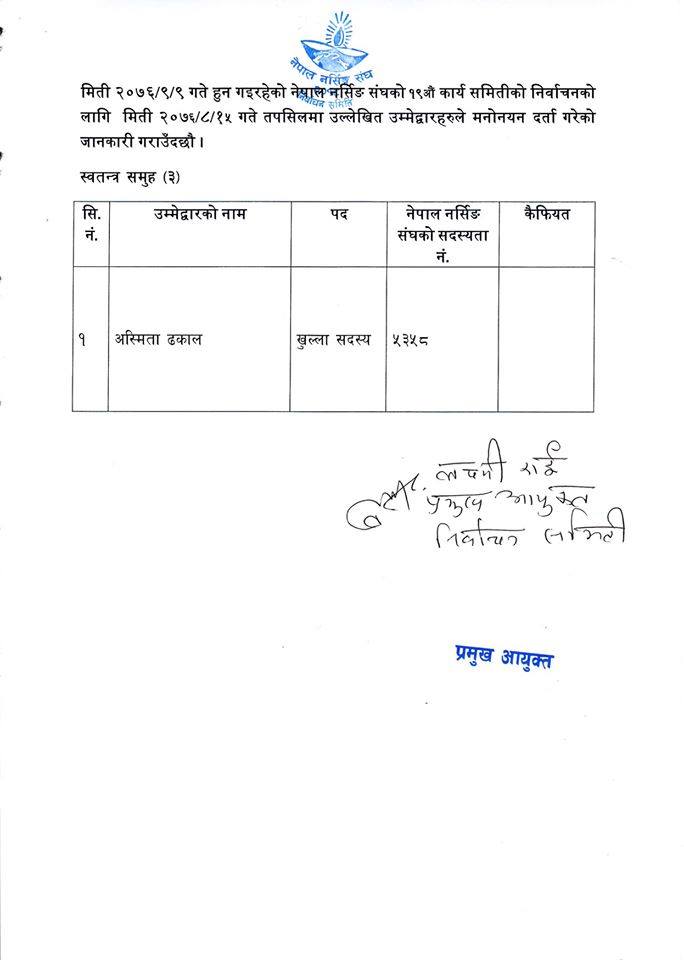 नेपाल नर्सिङ संघ
निर्वाचन समिति
मिती २०७६/९/९ गते हुन गइरहेको नेपाल नर्सिङ संघको १९औ कार्य समितीको निर्वाचनको
लागि मिती २०७६/८/१५ गते तपसिलमा उल्लेखित उम्मेद्वारहरुले मनोनयन दर्ता गरेको
जानकारी गराउँदछौ ।
स्वतन्त्र समुह (३)
सि. नं. उम्मेद्वारको नाम पद नेपाल नर्सिङ संघको सदस्यता नं. कैफियत
१ अस्मिता ढकाल खुल्ला सदस्य ५३५८
लक्ष्मी राई
प्रमुख आयुक्त
निर्वाचन समिती
प्रमुख आयुक्त